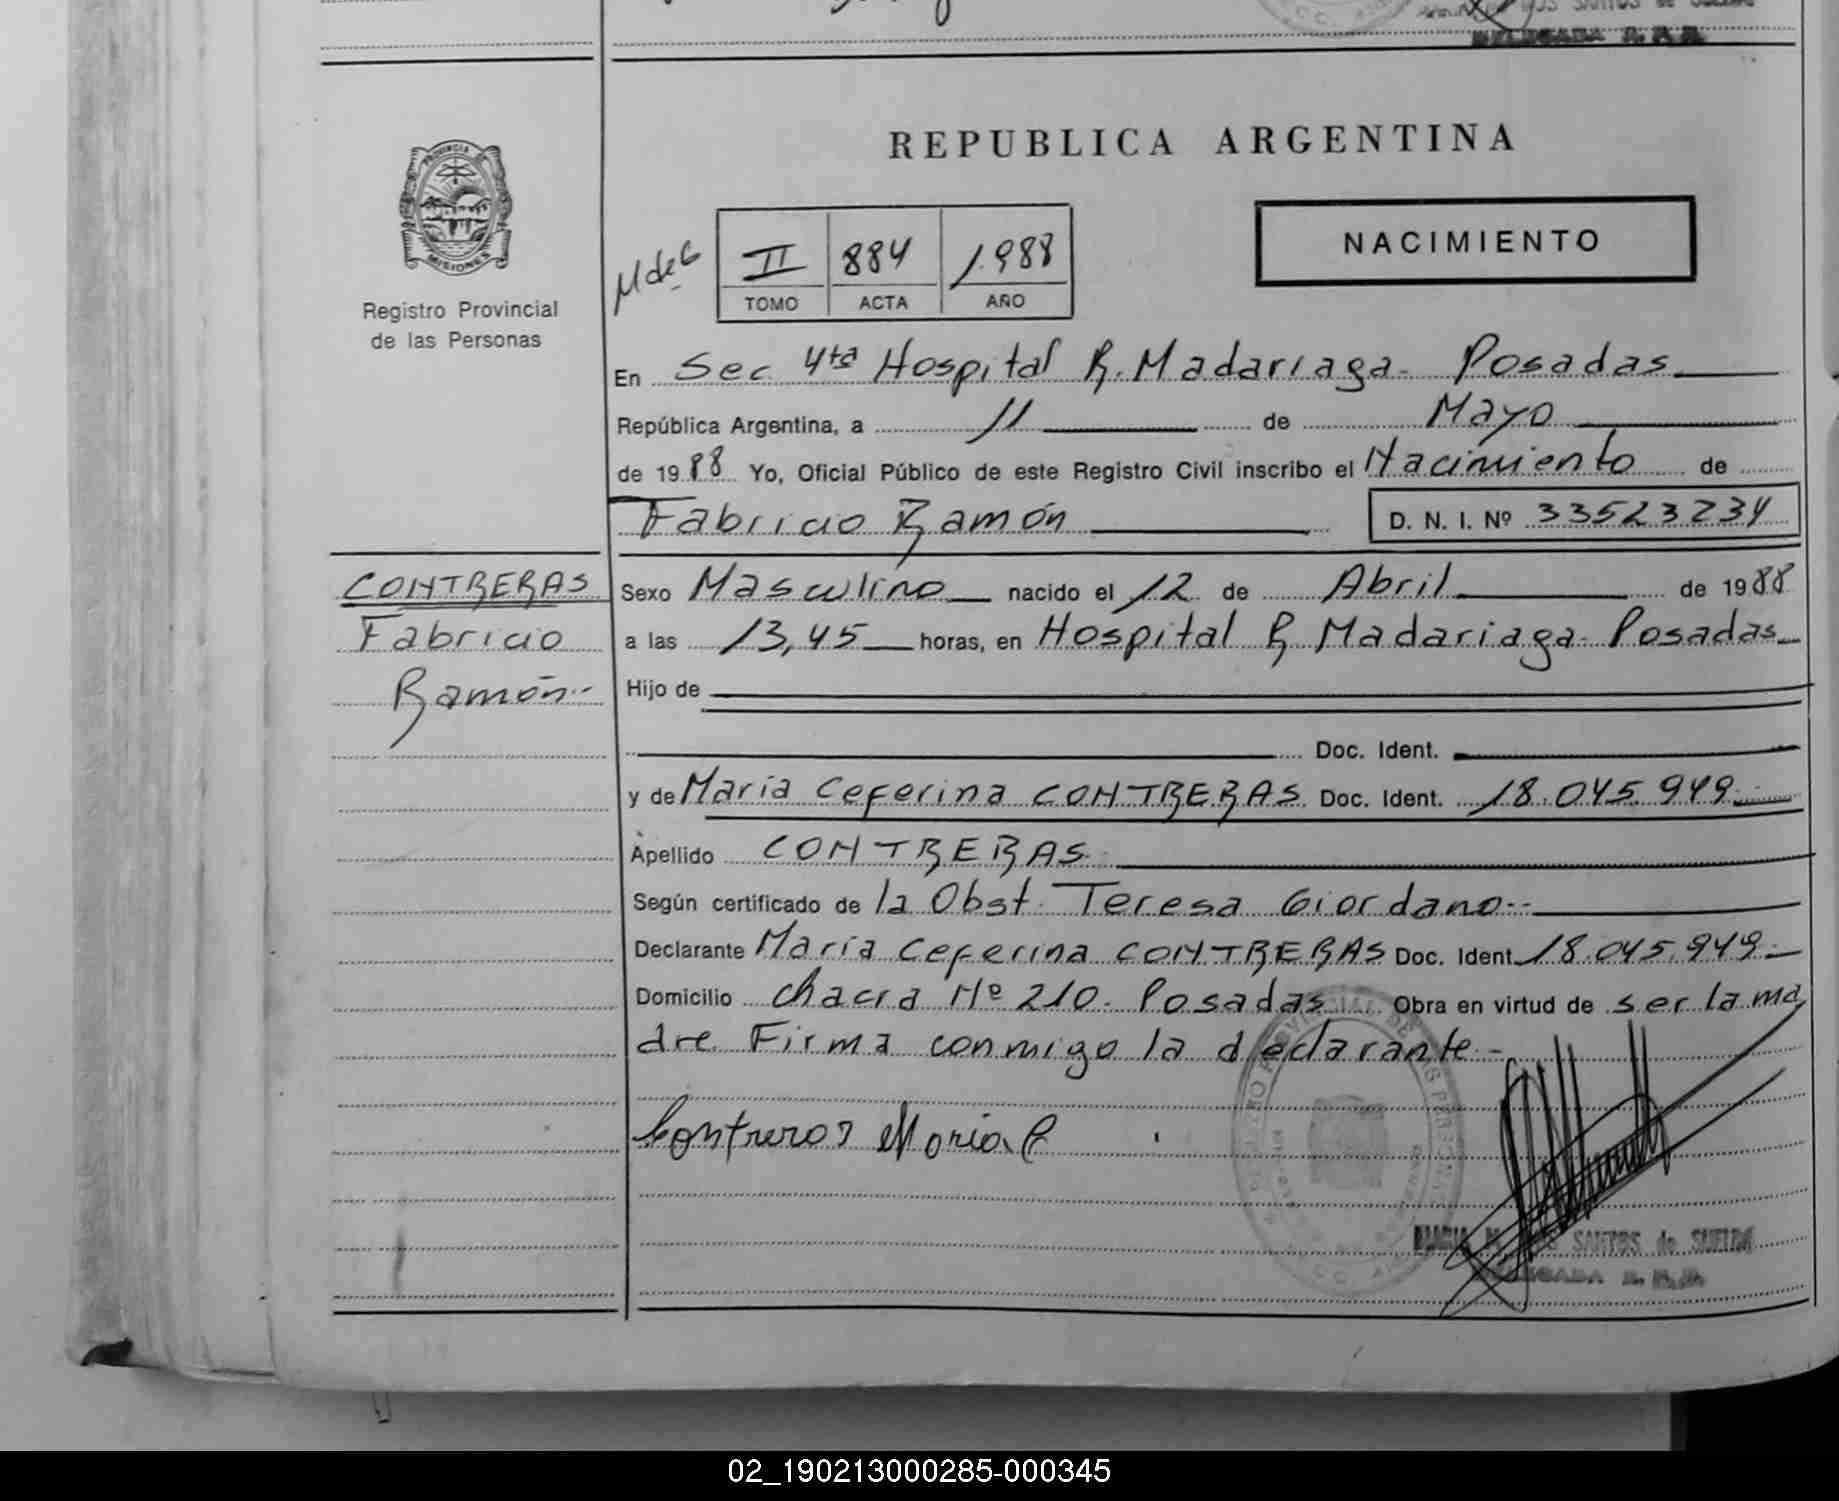 DELEGADA R. P. P.
REPUBLICA ARGENTINA
PROVINCIA DE
MISIONES
Registro Provincial
de las Personas
NACIMIENTO
II 884 1.988
TOMO ACTA AÑO
En Sec 4ta Hospital R. Madariaga - Posadas
República Argentina, a 11 de Mayo
de 1988 Yo, Oficial Público de este Registro Civil inscribo el Nacimiento de
Fabricio Ramón D. N. I. Nº 33523234
CONTRERAS
Fabricio
Ramón.-
Sexo Masculino nacido el 12 de Abril de 1988
a las 13,45 horas, en Hospital R. Madariaga - Posadas
Hijo de
Doc. Ident.
y de Maria Ceferina CONTRERAS Doc. Ident. 18.045.949.-
Apellido CONTRERAS.
Según certificado de la Obst. Teresa Giordano.-
Declarante Maria Ceferina CONTRERAS Doc. Ident 18.045.949.-
Domicilio Chacra Nº 210. Posadas Obra en virtud de ser la ma
dre. Firma conmigo la declarante.-
Contreras Maria C
SANTOS de SUELDO
DELEGADA R. P. P.
02_190213000285-000345